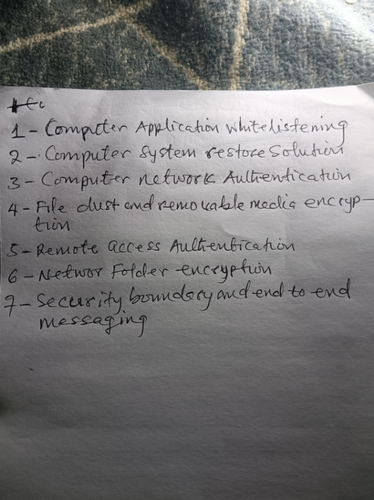 1 - Computer Application whitelistening
2 - Computer System restore Solution
3 - Computer network Authentication
4 - File dust and removable media encryp-
tion
5 - Remote access Authentication
6 - Networ Folder encryption
7 - Security boundary and end to end
messaging